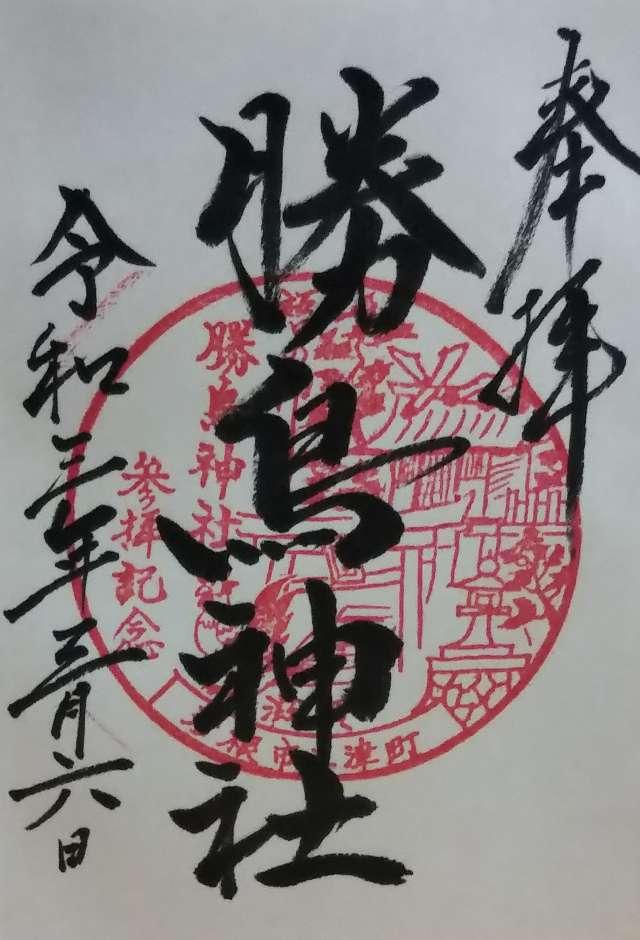 奉拝
勝鳥神社
令和三年三月六日
勝鳥神社
参拝記念
津町